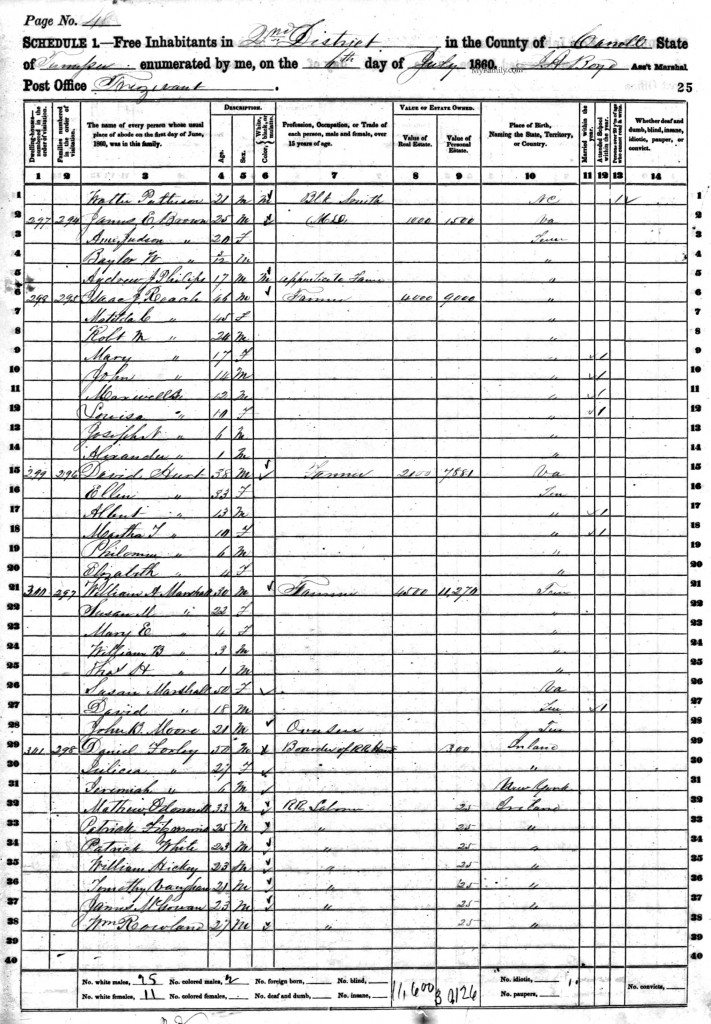 Page No. 48
SCHEDULE 1.—Free Inhabitants in 2nd District in the County of Carroll State
of Tennessee enumerated by me, on the 6th day of July 1860. J A Boyd Ass't Marshal
MyFamily.com
Post Office Trezevant 25
Dwelling-houses—numbered in the order of visitation.
Families numbered in the order of visitation.
The name of every person whose usual place of abode on the first day of June, 1860, was in this family.
DESCRIPTION.
Age.
Sex.
Color, White, black, or mulatto.
Profession, Occupation, or Trade of each person, male and female, over 15 years of age.
VALUE OF ESTATE OWNED.
Value of Real Estate.
Value of Personal Estate.
Place of Birth, Naming the State, Territory, or Country.
Married within the year.
Attended School within the year.
Whether deaf and dumb, blind, insane, idiotic, pauper, or convict.
1 2 3 4 5 6 7 8 9 10 11 12 13 14
1 Walter Patterson 21 M M Blk Smith NC 1 1
2 297 294 James C. Brown 25 M M.D. 1000 1500 Va 2
3 Judson " 20 F Tenn 3
4 Baylor W " M " 4
5 Andrew J Philips 17 M M " 5
6 298 295 Isaac J. Roach 46 M Farmer 4000 9000 " 6
7 Matilda C " 45 F " 7
8 Robt M " 20 M " 8
9 Mary " 17 F " 1 9
10 John " 14 M " 1 10
11 Maxwell B " 12 M " 1 11
12 Louisa " 10 F " 1 12
13 Joseph N " 6 M " 13
14 Alexander " 1 M " 14
15 299 296 David Hurt 38 M Farmer 2100 7881 Va 15
16 Ellen " 33 F Ten 16
17 Albert " 13 M " 1 17
18 Martha T " 10 F " 1 18
19 Philomen " 6 M " 19
20 Elizabeth " 4 F " 20
21 300 297 William A Marshall 30 M Farmer 4500 11,270 Ten 21
22 Susan M " 22 F " 22
23 Mary E " 4 F " 23
24 William B " 3 M " 24
25 Thos H " 1 M " 25
26 Susan Marshall 50 F Va 26
27 David " 18 M Ten 1 27
28 John B. Moore 21 M Overseer Ten 28
29 301 298 Daniel Forley 50 M Boarder of RR Hands 300 Irland 29
30 " 27 F " 30
31 Jeremiah " 6 M New York 31
32 Mathew O Donnell 33 M RR Laborer 25 Ireland 32
33 Patrick 25 M " 25 " 33
34 Patrick White 23 M " 25 " 34
35 William Hickey 23 M " 25 " 35
36 Timothy Vaughan 21 M " 25 " 36
37 James McGowan 23 M " 25 " 37
38 Wm Rowland 27 M " 25 " 38
39 39
40 40
No. white males, 25 No. colored males, 2 No. foreign born, No. blind, 11,600 No. idiotic, No. convicts,
No. white females, 11 No. colored females, No. deaf and dumb, No. insane, No. paupers,